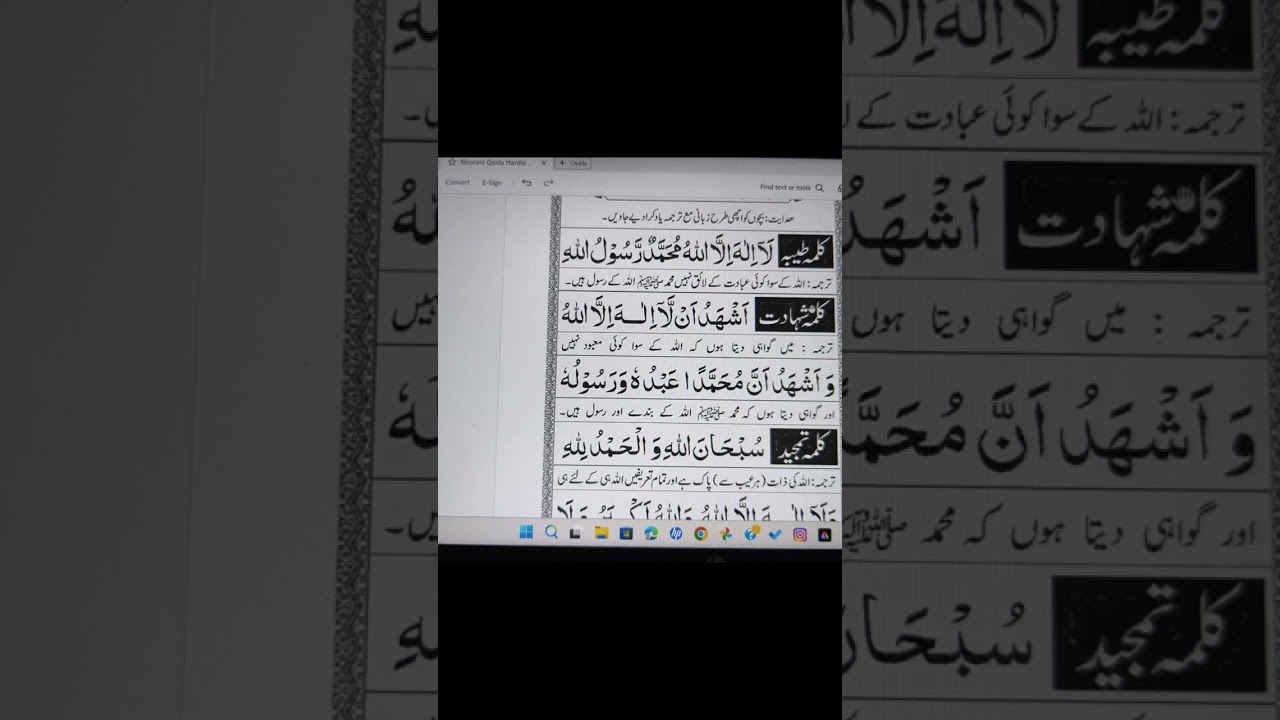 Noorani Qaida Hardoi ...
Create
Convert E-Sign
Find text or tools
ھدایت: بچوں کو اچھی طرح زبانی مع ترجمہ یاد کرا دیے جاویں۔
کلمہ طیبہ لَآ اِلٰهَ اِلَّا اللهُ مُحَمَّدٌ رَّسُوْلُ اللهِ
ترجمہ: اللہ کے سوا کوئی عبادت کے لائق نہیں محمد ﷺ اللہ کے رسول ہیں۔
کلمہ شہادت اَشْهَدُ اَنْ لَّآ اِلٰـهَ اِلَّا اللهُ
ترجمہ : میں گواہی دیتا ہوں کہ اللہ کے سوا کوئی معبود نہیں
وَ اَشْهَدُ اَنَّ مُحَمَّدًا عَبْدُهٗ وَرَسُوْلُهٗ
اور گواہی دیتا ہوں کہ محمد ﷺ اللہ کے بندے اور رسول ہیں۔
کلمہ تمجید سُبْحَانَ اللهِ وَ الْحَمْدُ لِلّٰهِ
ترجمہ: اللہ کی ذات (ہر عیب سے) پاک ہے اور تمام تعریفیں اللہ ہی کے لئے ہی